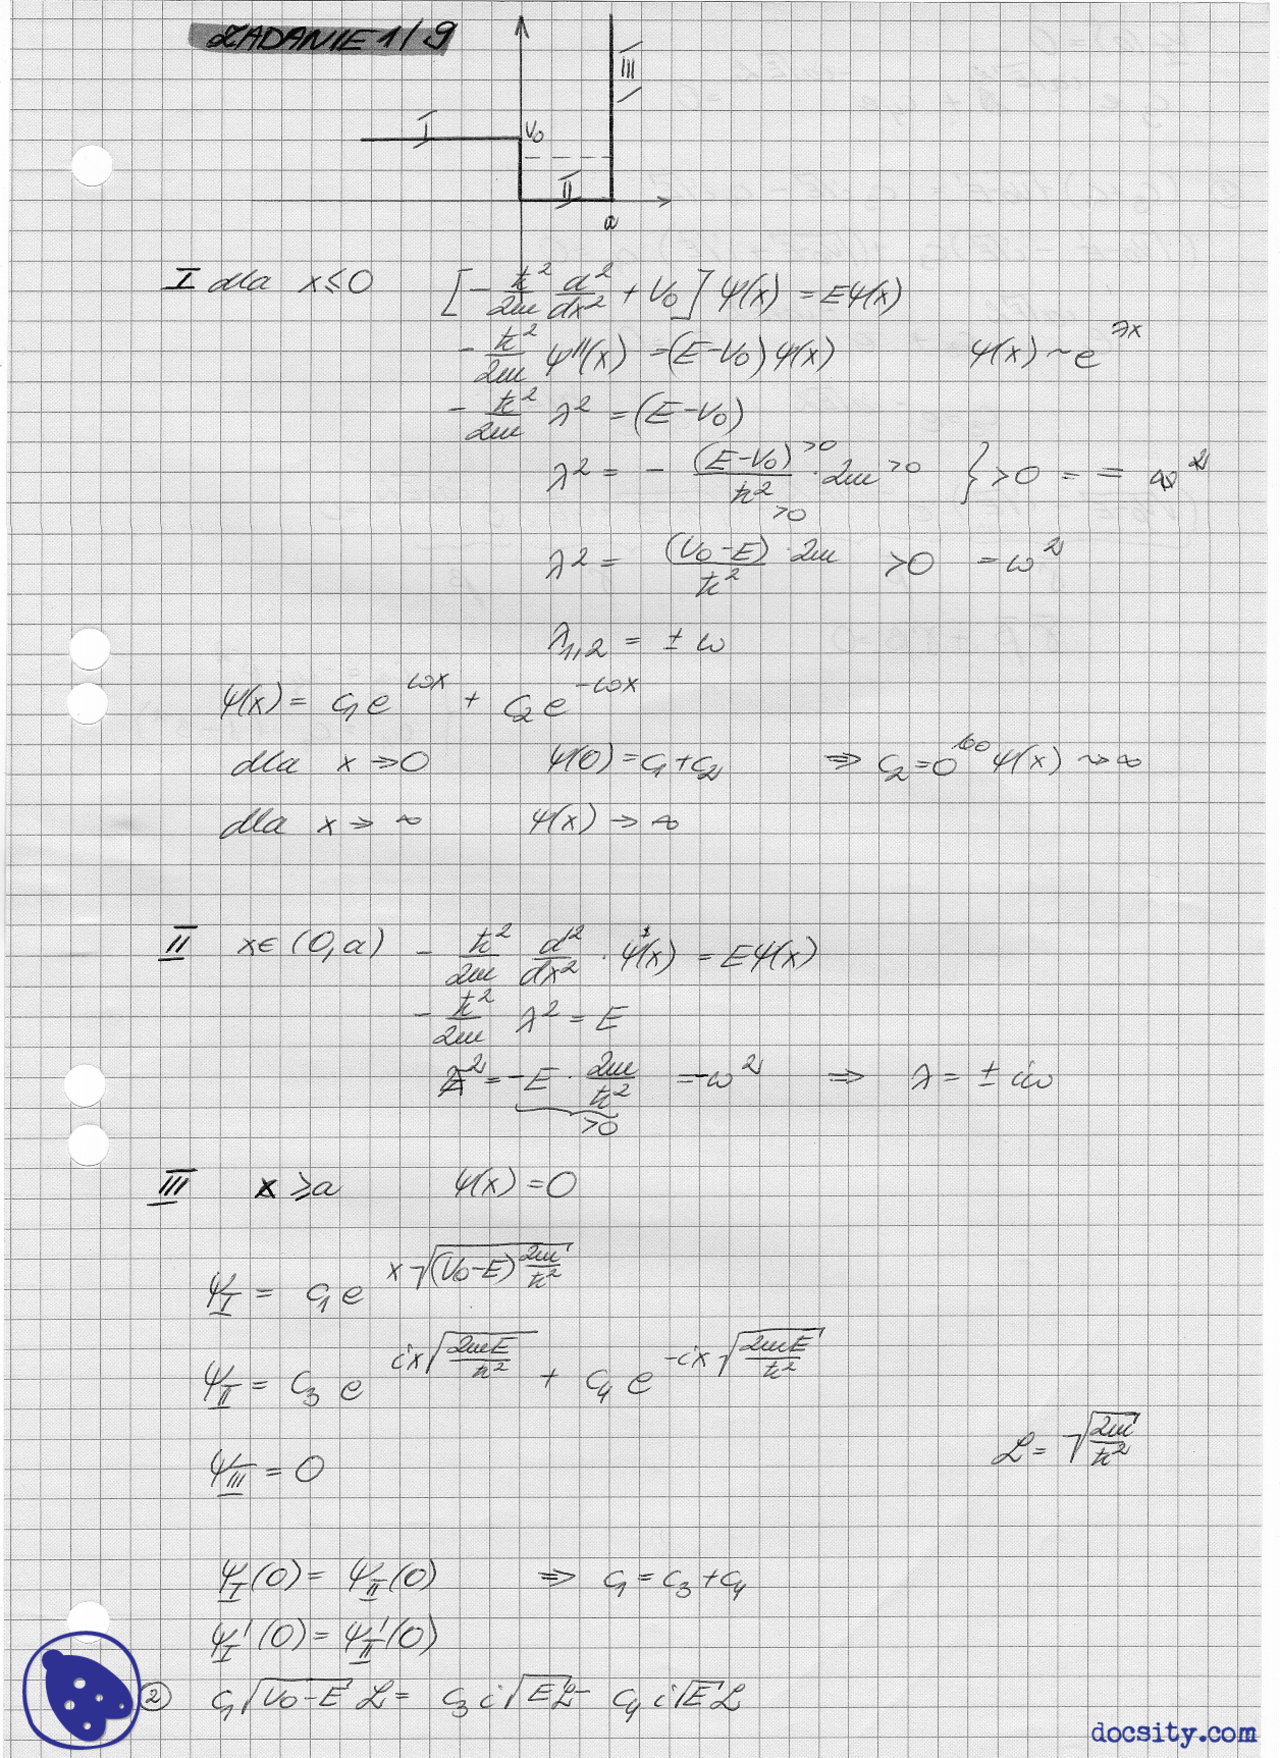 ZADANIE 1/9
III
I
V₀
II
a
I dla x ≤ 0 [-ħ²/2m d²/dx² + V₀] ψ(x) = Eψ(x)
-ħ²/2m ψ''(x) = (E-V₀) ψ(x) ψ(x) ~ e^{λx}
-ħ²/2m λ² = (E-V₀)
λ² = - (E-V₀)^{>0}/ħ²_{>0} · 2m^{>0} } >0 = = ω²
λ² = (V₀-E)/ħ² · 2m >0 = ω²
λ₁,₂ = ± ω
ψ(x) = c₁e^{ωx} + c₂e^{-ωx}
dla x → 0 ψ(0) = c₁+c₂ ⇒ c₂=0 bo ψ(x) ~> ∞
dla x → ∞ ψ(x) → ∞
II x∈(0,a) -ħ²/2m d²/dx² · ψ(x) = Eψ(x)
-ħ²/2m λ² = E
λ² = -E · 2m/ħ² = -ω² ⇒ λ = ± iω
>0
III x ≥ a ψ(x) = 0
ψ_I = c₁ e^{x√((V₀-E) 2m/ħ²)}
ψ_II = c₃ e^{ix√(2mE/ħ²)} + c₄ e^{-ix√(2mE/ħ²)}
ψ_III = 0 ℒ = √(2m/ħ²)
ψ_I(0) = ψ_II(0) ⇒ c₁ = c₃ + c₄
ψ_I'(0) = ψ_II'(0)
② c₁√(V₀-E) ℒ = c₃ i√E ℒ - c₄ i√E ℒ
docsity.com